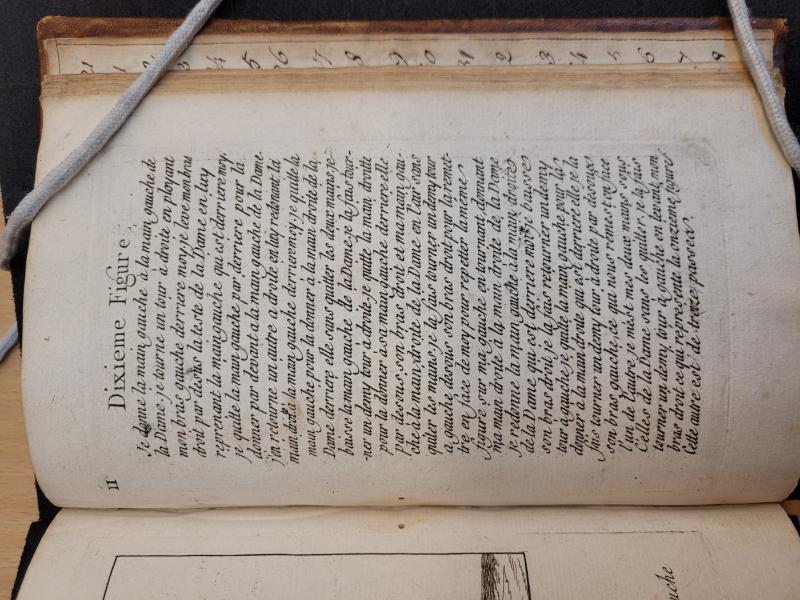 11
Dixieme Figure
Je donne la main gauche à la main gauche de
la Dame je tourne un tour à droite en ployant
mon bras gauche derriere moy je leve mon bras
droit par desus la teste de la Dame en luy
reprenant la main gauche qui est derriere moy.
je quitte la main gauche par derriere pour la
donner par devant a la main gauche de la Dame.
j'en retourne un autre a droite en luy redonnant la
main droite la main gauche derrier moy, je quite la
main gauche pour la donner à la main droite de la
Dame derriere elle sans quiter les deux mains, je
baisse la main gauche de la Dame je la fais tour-
-ner un demy tour à droite je quitte la main droitte
pour la donner à sa main gauche derriere elle
par desous son bras droit et ma main gau-
che à la main droite de la Dame en l'air sans
quiter les mains je la fais tourner un demy tour
a gauche desous son bras droit pour la remet-
tre en face de moy pour repetter la meme
figure sur ma gauche en tournant donnant
ma main droite à la main droite de la Dame
je redonne la main gauche à la main droite
de la Dame qui est derriere moy je baisse
son bras droit je la fais retourner un demy
tour a gauche je quitte la main gauche pour la
donner à la main droite qui est derriere elle je la
fais tourner un demy tour à droite par desous
son bras gauche ce qui nous remest en face
l'un de l'autre je mest mes deux mains sous
Celles de la Dame sans les quiter je la fais
tourner un demy tour à gauche en levant mon
bras droit ce qui represente la onzieme figure
Cette autre est de trace passez
uche